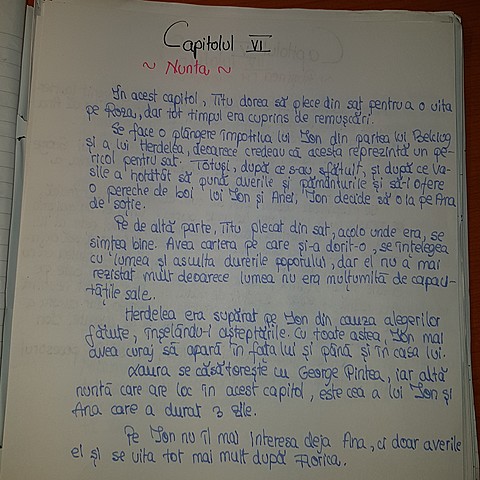 Capitolul VI
~ Nunta ~
În acest capitol, Titu dorea să plece din sat pentru a o uita
pe Roza, dar tot timpul era cuprins de remușcări.
Se face o plângere împotriva lui Ion din partea lui Belciug
și a lui Herdelea, deoarece credeau că acesta reprezintă un pe-
ricol pentru sat. Totuși, după ce s-au sfătuit, și după ce Va-
sile a hotărât să pună averile și pământurile și să-i ofere
o pereche de boi lui Ion și Anei, Ion decide să o ia pe Ana
de soție.
Pe de altă parte, Titu plecat din sat, acolo unde era, se
simțea bine. Avea cariera pe care și-a dorit-o, se înțelegea
cu lumea și asculta durerile poporului, dar el nu a mai
rezistat mult deoarece lumea nu era mulțumită de capaci-
tățile sale.
Herdelea era supărat pe Ion din cauza alegerilor
făcute, înșelându-i așteptările. Cu toate astea, Ion mai
avea curaj să apară în fața lui și până și în casa lui.
Laura se căsătorește cu George Pintea, iar altă
nuntă care are loc în acest capitol, este cea a lui Ion și
Ana care a durat 3 zile.
Pe Ion nu îl mai interesa deja Ana, ci doar averile
ei și se uita tot mai mult după Florica.